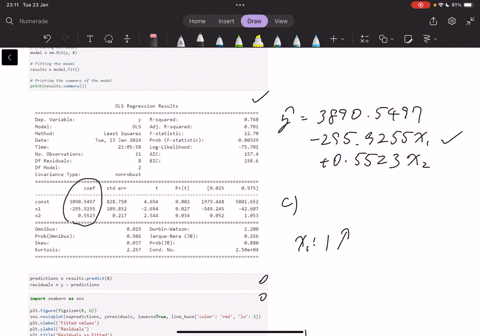 23:11 Tue 23 Jan
Numerade
Home
Insert
Draw
View
model = sm.OLS(y, X)
# Fitting the model
results = model.fit()
# Printing the summary of the model
print(results.summary())
OLS Regression Results
Dep. Variable: y R-squared: 0.760
Model: OLS Adj. R-squared: 0.701
Method: Least Squares F-statistic: 12.70
Date: Tue, 23 Jan 2024 Prob (F-statistic): 0.00329
Time: 21:05:58 Log-Likelihood: -75.701
No. Observations: 11 AIC: 157.4
Df Residuals: 8 BIC: 158.6
Df Model: 2
Covariance Type: nonrobust
coef std err t P>|t| [0.025 0.975]
const 3890.5497 828.750 4.694 0.002 1979.448 5801.652
x1 -295.9255 109.852 -2.694 0.027 -549.245 -42.607
x2 0.5523 0.217 2.544 0.034 0.052 1.053
Omnibus: 0.029 Durbin-Watson: 1.200
Prob(Omnibus): 0.986 Jarque-Bera (JB): 0.256
Skew: 0.037 Prob(JB): 0.880
Kurtosis: 2.257 Cond. No. 2.50e+04
predictions = results.predict(X)
residuals = y - predictions
import seaborn as sns
plt.figure(figsize=(8, 6))
plt.xlabel('Fitted values')
plt.ylabel('Residuals')
ŷ = 3890.5497
-295.9255x₁ ✓
+0.5523x₂
c)
x₁: 1 ↑